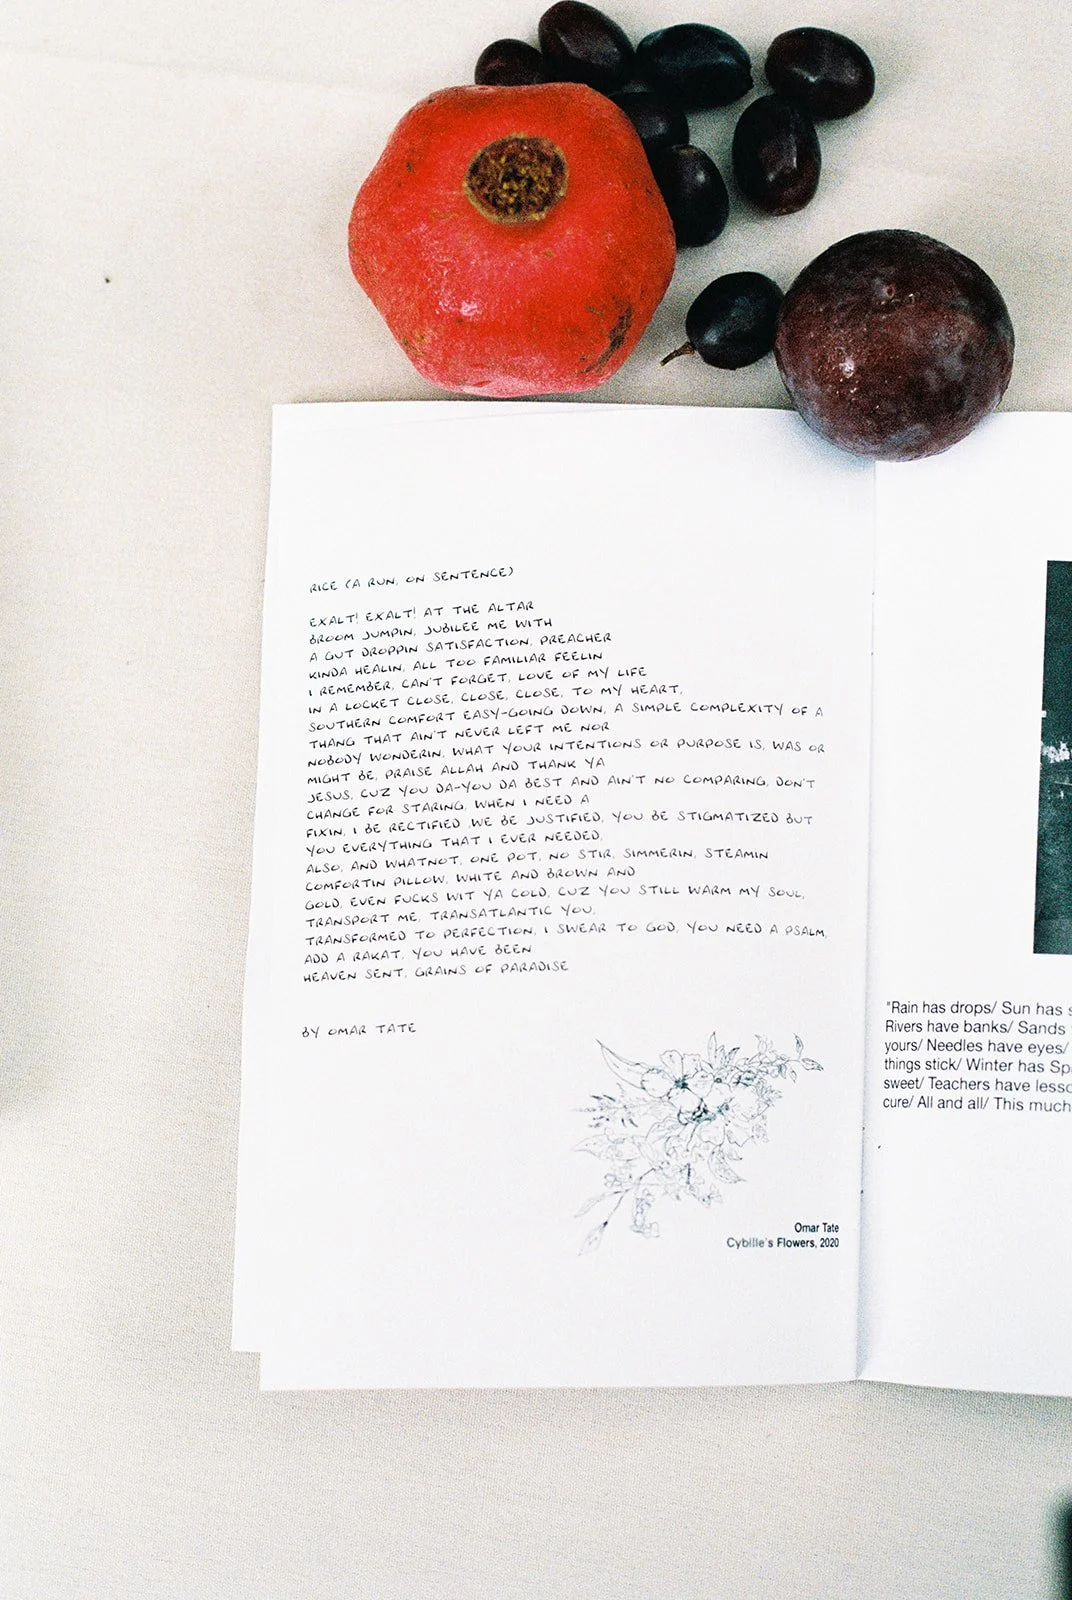 RICE (A RUN, ON SENTENCE)
EXALT! EXALT! AT THE ALTAR
BROOM JUMPIN, JUBILEE ME WITH
A GUT DROPPIN SATISFACTION, PREACHER
KINDA HEALIN, ALL TOO FAMILIAR FEELIN
I REMEMBER, CAN'T FORGET, LOVE OF MY LIFE
IN A LOCKET CLOSE, CLOSE, CLOSE, TO MY HEART,
SOUTHERN COMFORT EASY-GOING DOWN, A SIMPLE COMPLEXITY OF A
THANG THAT AIN'T NEVER LEFT ME NOR
NOBODY WONDERIN, WHAT YOUR INTENTIONS OR PURPOSE IS, WAS OR
MIGHT BE, PRAISE ALLAH AND THANK YA
JESUS, CUZ YOU DA-YOU DA BEST AND AIN'T NO COMPARING, DON'T
CHANGE FOR STARING, WHEN I NEED A
FIXIN, I BE RECTIFIED ,WE BE JUSTIFIED, YOU BE STIGMATIZED BUT
YOU EVERYTHING THAT I EVER NEEDED,
ALSO, AND WHATNOT, ONE POT, NO STIR, SIMMERIN, STEAMIN
COMFORTIN PILLOW, WHITE AND BROWN AND
GOLD, EVEN FUCKS WIT YA COLD, CUZ YOU STILL WARM MY SOUL,
TRANSPORT ME, TRANSATLANTIC YOU,
TRANSFORMED TO PERFECTION, I SWEAR TO GOD, YOU NEED A PSALM,
ADD A RAKAT, YOU HAVE BEEN
HEAVEN SENT, GRAINS OF PARADISE
BY OMAR TATE
Omar Tate
Cybille's Flowers, 2020
"Rain has drops/ Sun has
Rivers have banks/ Sands
yours/ Needles have eyes/
things stick/ Winter has
sweet/ Teachers have
cure/ All and all/ This much